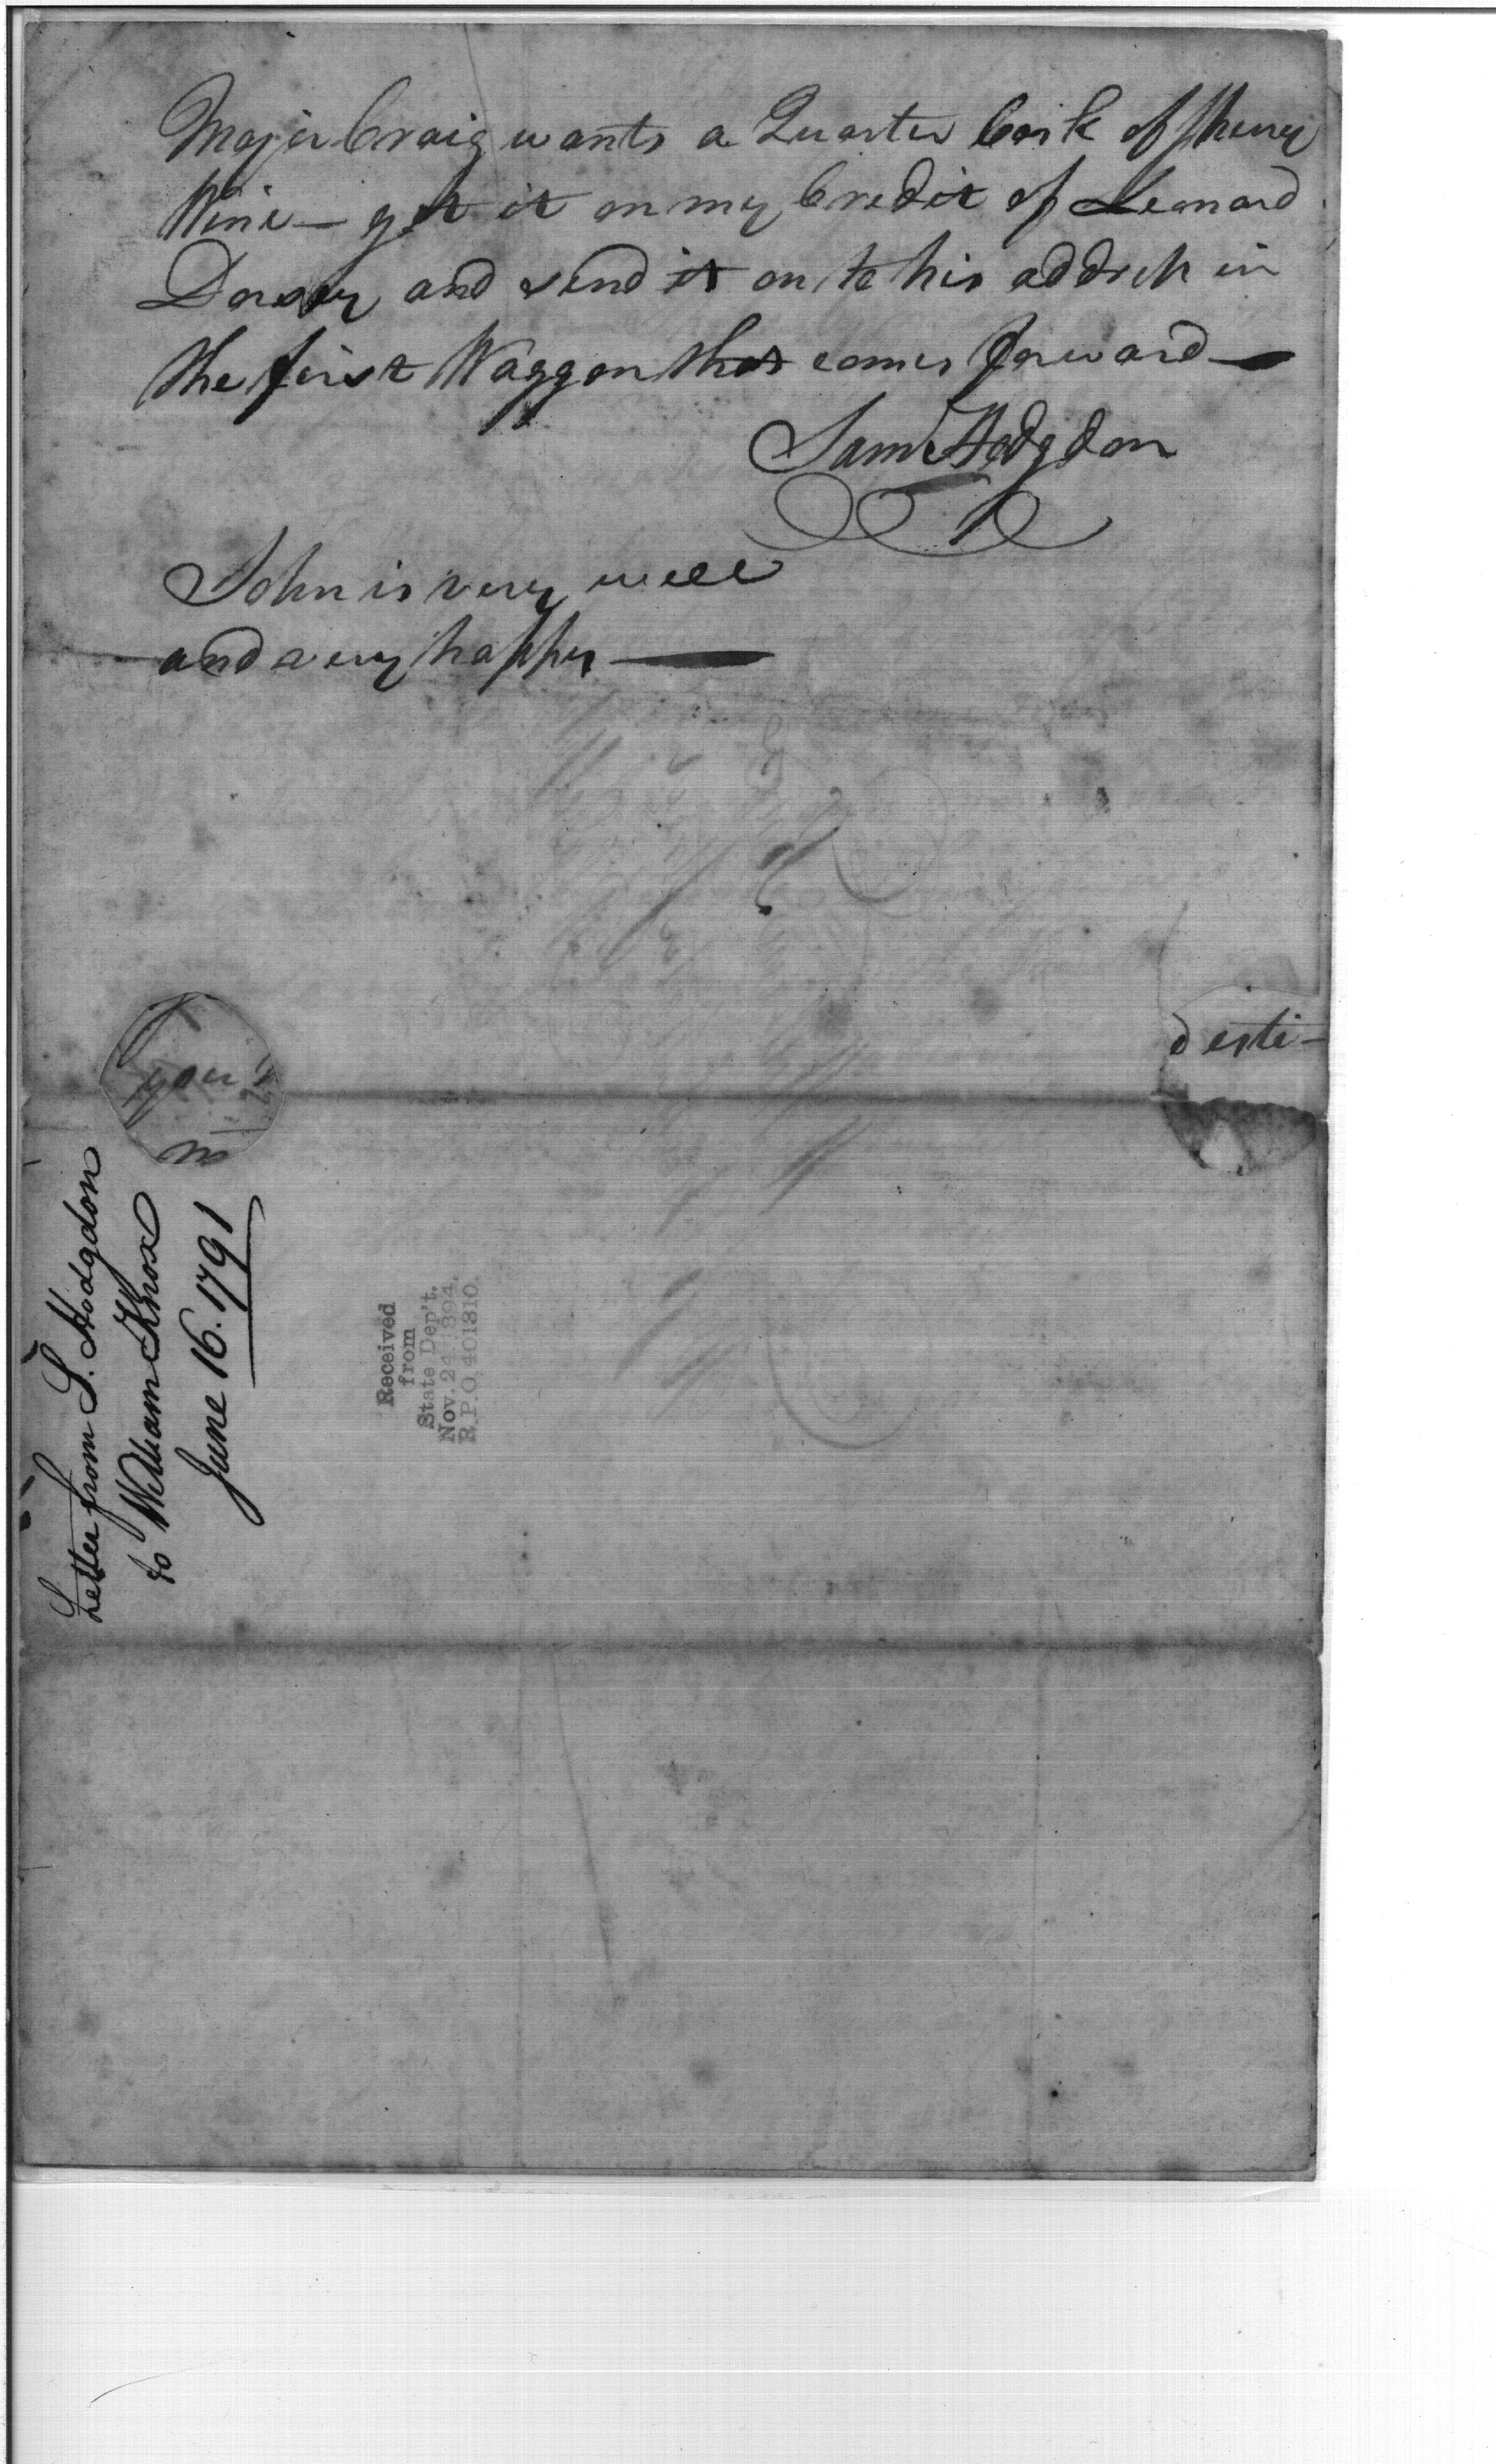 Major Craig wants a Quarter Cask of Sherry
Wine — get it on my Credit of Leonard
Dorsey and send it on to his address in
the first Waggon that comes forward —
Saml Hodgdon
John is very well
and very happy —
you
m
d esti-
Letter from S. Hodgdon
to William Knox
June 16. 1791
Received
from
State Dep't.
Nov. 24 1894.
R.P.O. 401310.